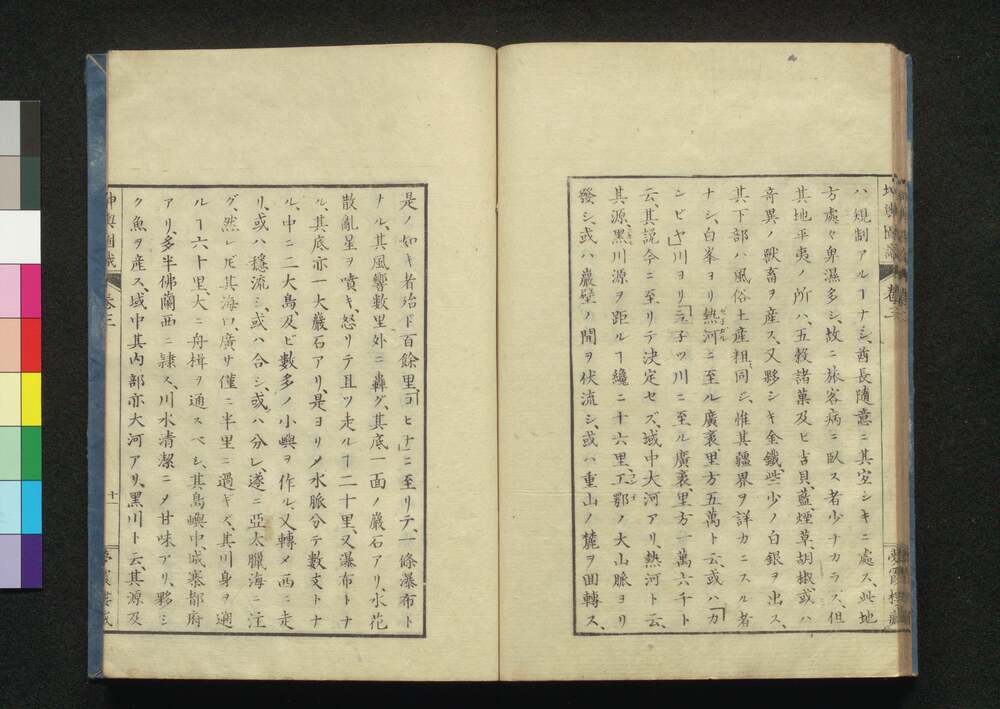 ハ規制アルヿナシ、酋長隨意ニ其空シキニ處ス、此地
方處々卑濕多シ、故ニ旅客病ニ臥ス者少ナカラス、但
其地平夷ノ所ハ、五穀諸菓及ヒ吉貝、藍、煙草、胡椒、或ハ
奇異ノ獸畜ヲ産ス、又夥シキ金鐵、些少ノ白銀ヲ出ス、
其下部ハ風俗土産粗同シ、惟其疆界ヲ詳カニスル者
ナシ、白峯ヨリ熱河ニ至ル廣袤里方五萬ト云、或ハ「カ
ンビヤ」川ヨリ「 子ツ川ニ至ル廣袤里方一萬六千ト
云、其説今ニ至リテ決定セズ、域中大河アリ、熱河ト云、
其源、黒川源ヲ距ルヿ纔ニ十六里、工鄂ノ大山脈ヨリ
發シ、或ハ巖壁ノ間ヲ伏流シ、或ハ重山ノ麓ヲ回轉ス、
卷三
是ノ如キ者殆ド百餘里、「 ヒナ」ニ至リテ、一條瀑布ト
ナル、其風響數里外ニ轟グ、其底一面ノ巖石アリ、水花
散亂星ヲ噴キ、怒リテ且ツ走ルヿ二十里、又瀑布トナ
ル、其底亦一大巖石アリ、是ヨリメ水脈分テ數支トナ
ル、中ニ二大島、及ビ數多ノ小嶼ヲ作ル、又轉メ西ニ走
リ、或ハ穩流シ、或ハ合シ、或ハ分レ、遂ニ亞太臘海ニ注
グ、然レ𪜈其海口、廣サ僅ニ半里ニ過ギズ、其川身ヲ遡
ルヿ六十里、大ニ舟楫ヲ通スベシ、其島嶼中、城寨都府
アリ、多半佛蘭西ニ隷ス、川水清潔ニメ甘味アリ、夥シ
ク魚ヲ産ス、域中其内部亦大河アリ、黒川ト云、其源及
卷三
十一